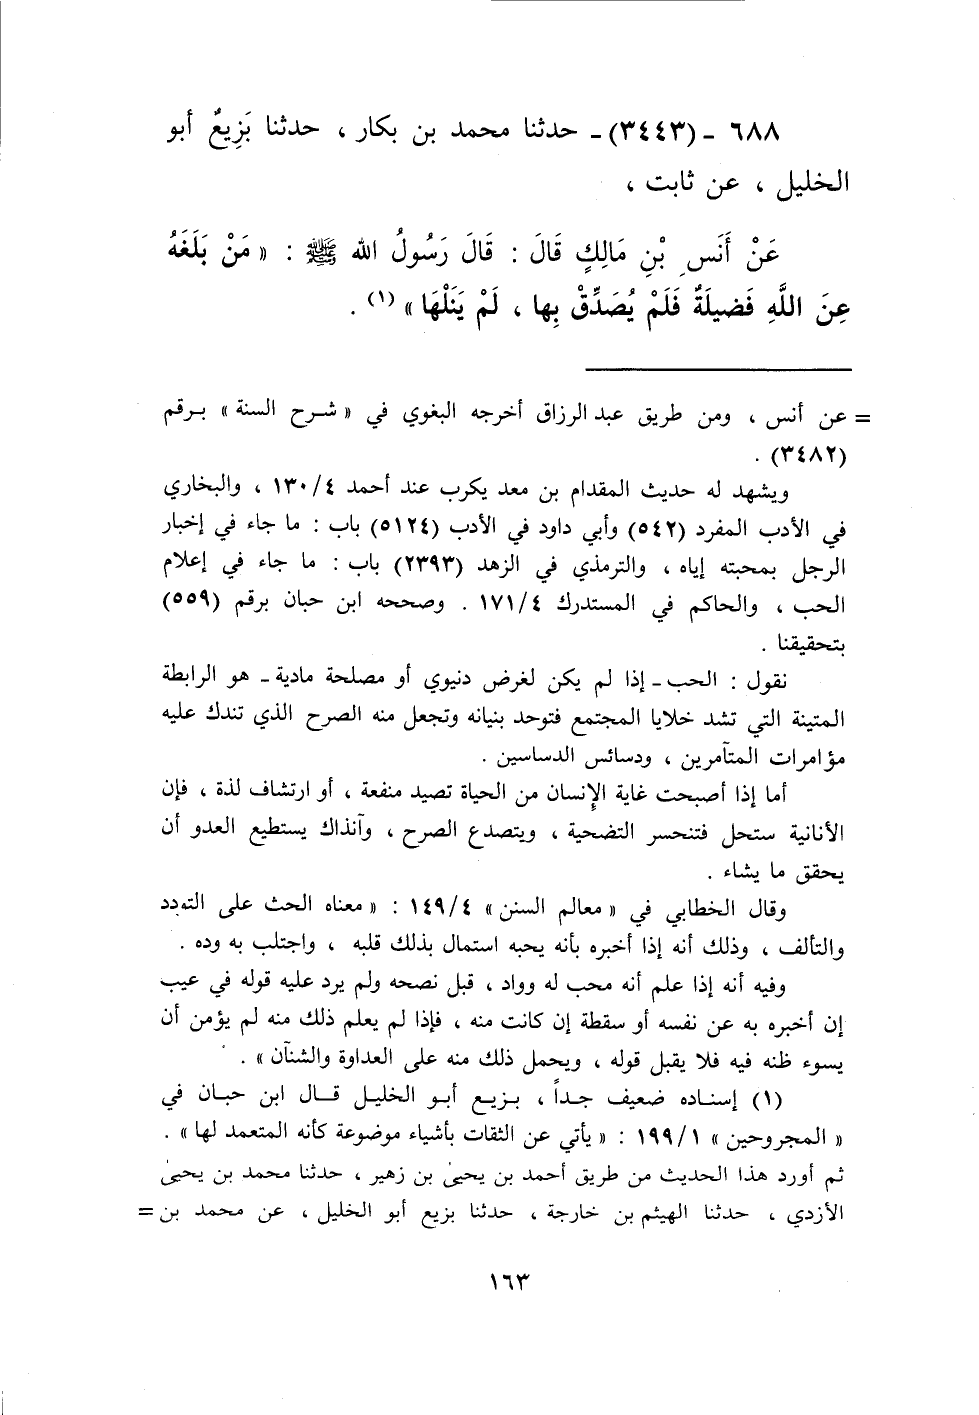 ٦٨٨ - (٣٤٤٣) - حدثنا محمد بن بكار ، حدثنا بَزِيعٌ أبو
الخليل ، عن ثابت ،
عَنْ أَنَسِ بْنِ مَالِكٍ قَالَ : قَالَ رَسُولُ الله ﷺ : « مَنْ بَلَغَهُ
عِنَ اللَّهِ فَضيلَةٌ فَلَمْ يُصَدِّقْ بِها ، لَمْ يَنَلْهَا » (١) .
= عن أنس ، ومن طريق عبد الرزاق أخرجه البغوي في « شرح السنة » برقم
(٣٤٨٢) .
ويشهد له حديث المقدام بن معد يكرب عند أحمد ٤/ ١٣٠ ، والبخاري
في الأدب المفرد (٥٤٢) وأبي داود في الأدب (٥١٢٤) باب : ما جاء في إخبار
الرجل بمحبته إياه ، والترمذي في الزهد (٢٣٩٣) باب : ما جاء في إعلام
الحب ، والحاكم في المستدرك ٤/ ١٧١ . وصححه ابن حبان برقم (٥٥٩)
بتحقيقنا .
نقول : الحب - إذا لم يكن لغرض دنيوي أو مصلحة مادية - هو الرابطة
المتينة التي تشد خلايا المجتمع فتوحد بنيانه وتجعل منه الصرح الذي تندك عليه
مؤامرات المتآمرين ، ودسائس الدساسين .
أما إذا أصبحت غاية الإنسان من الحياة تصيد منفعة ، أو ارتشاف لذة ، فإن
الأنانية ستحل فتنحسر التضحية ، ويتصدع الصرح ، وآنذاك يستطيع العدو أن
يحقق ما يشاء .
وقال الخطابي في « معالم السنن » ٤/ ١٤٩ : « معناه الحث على التودد
والتألف ، وذلك أنه إذا أخبره بأنه يحبه استمال بذلك قلبه ، واجتلب به وده .
وفيه أنه إذا علم أنه محب له وواد ، قبل نصحه ولم يرد عليه قوله في عيب
إن أخبره به عن نفسه أو سقطة إن كانت منه ، فإذا لم يعلم ذلك منه لم يؤمن أن
يسوء ظنه فيه فلا يقبل قوله ، ويحمل ذلك منه على العداوة والشنآن » .
(١) إسناده ضعيف جداً ، بزيع أبو الخليل قال ابن حبان في
« المجروحين » ١/ ١٩٩ : « يأتي عن الثقات بأشياء موضوعة كأنه المتعمد لها » .
ثم أورد هذا الحديث من طريق أحمد بن يحيىٰ بن زهير ، حدثنا محمد بن يحيىٰ
الأزدي ، حدثنا الهيثم بن خارجة ، حدثنا بزيع أبو الخليل ، عن محمد بن =
١٦٣